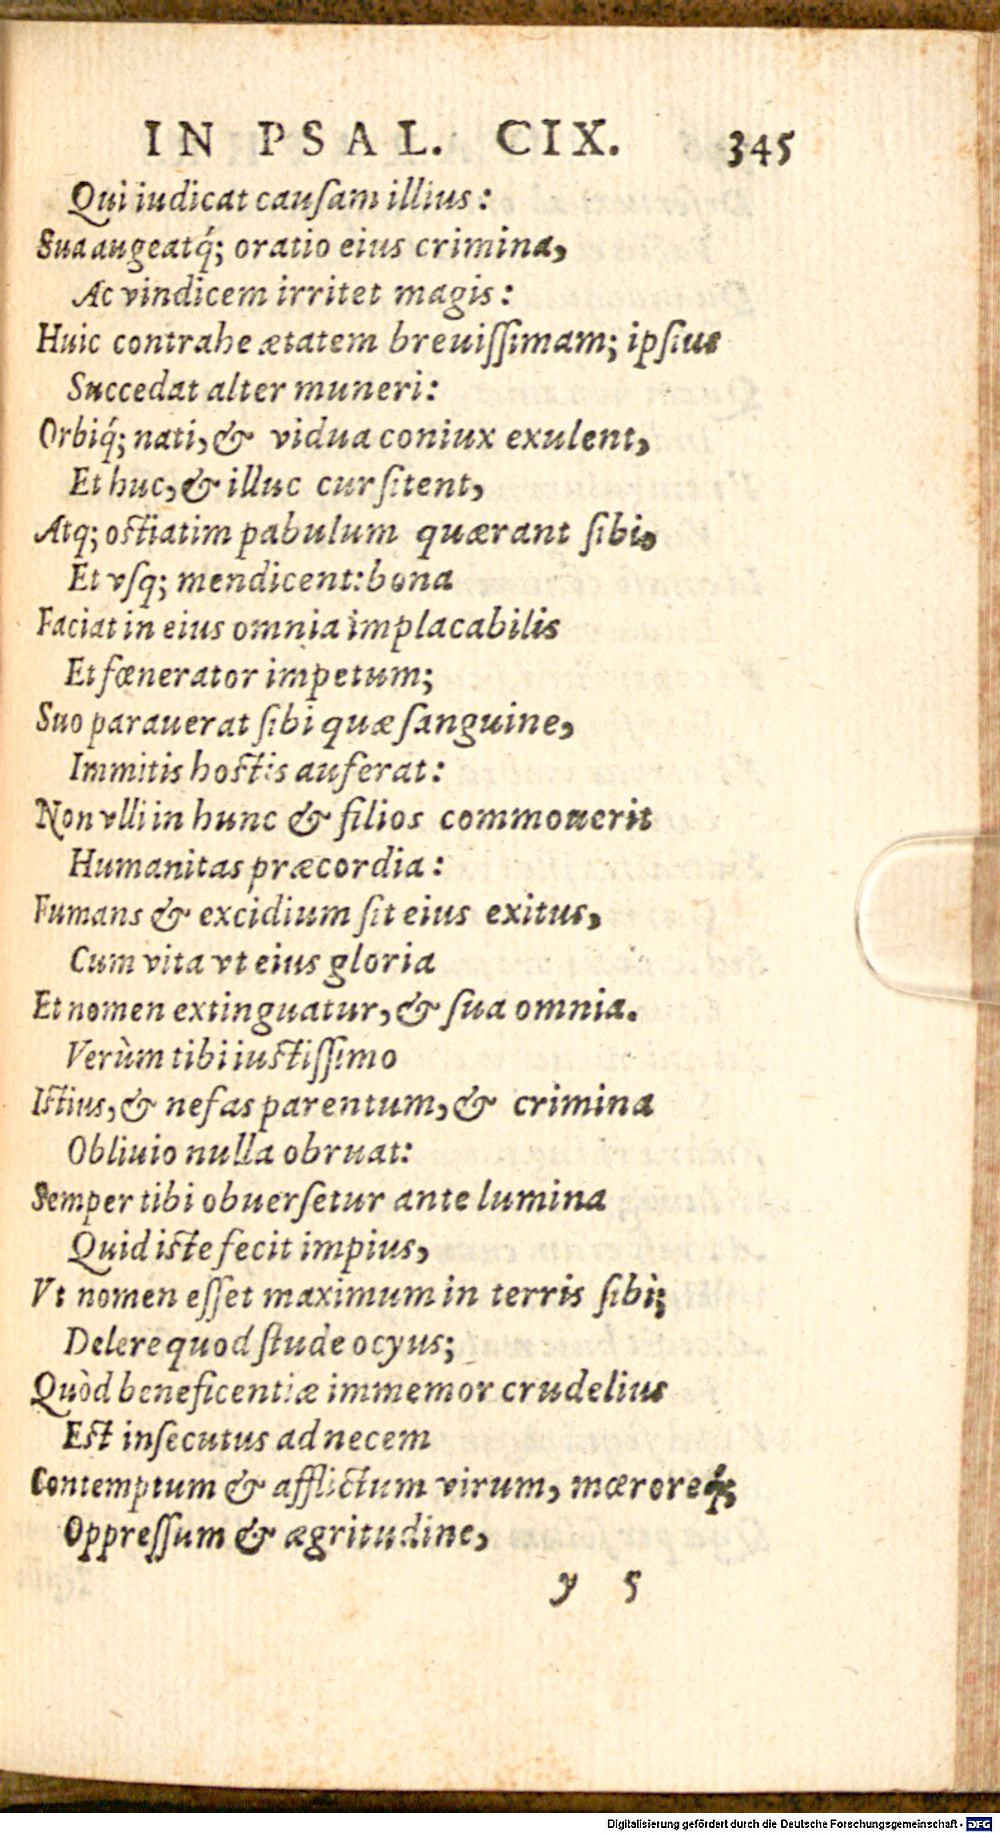 IN PSAL. CIX. 345
Qui iudicat cauſam illius:
Sua augeatq́; oratio eius crimina,
Ac vindicem irritet magis:
Huic contrahe ætatem breuiſſimam; ipſius
Succedat alter muneri:
Orbiq́; nati, & vidua coniux exulent,
Et huc, & illuc curſitent,
Atq; oſtiatim pabulum quærant ſibi,
Et vſq; mendicent: bona
Faciat in eius omnia implacabilis
Et fœnerator impetum;
Suo parauerat ſibi quæ ſanguine,
Immitis hoſtis auferat:
Non vlli in hunc & filios commouerit
Humanitas præcordia:
Fumans & excidium ſit eius exitus,
Cum vita vt eius gloria
Et nomen extinguatur, & ſua omnia.
Verùm tibi iuſtiſſimo
Iſtius, & nefas parentum, & crimina
Obliuio nulla obruat:
Semper tibi obuerſetur ante lumina
Quid iſte fecit impius,
Vt nomen eſſet maximum in terris ſibi;
Delere quod ſtude ocyus;
Quòd beneficentiæ immemor crudelius
Eſt inſecutus ad necem
Contemptum & afflictum virum, mœroreq́;
Oppreſſum & ægritudine,
y 5
Digitalisierung gefördert durch die Deutsche Forschungsgemeinschaft - DFG